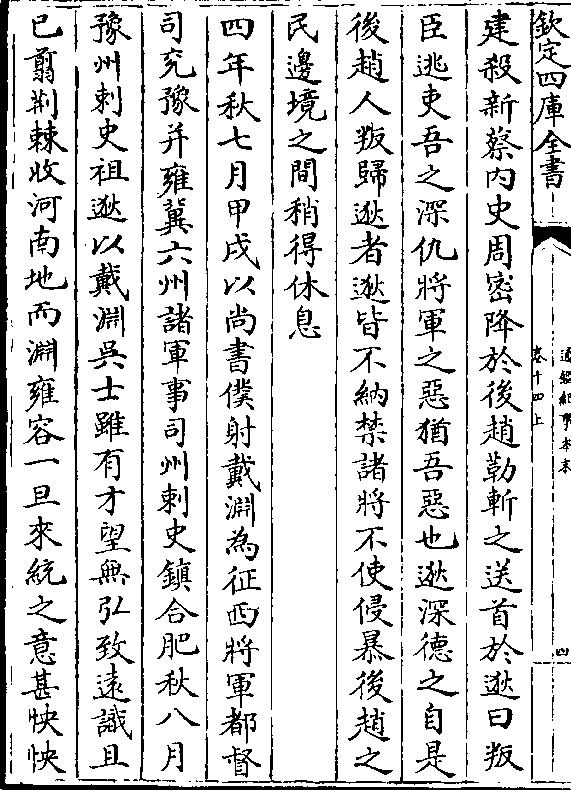 欽定四庫全書
通鑑紀事本末
卷十四上
四
建殺新蔡内史周密降於後趙勒斬之送首於逖曰叛
臣逃吏吾之深仇將軍之惡猶吾惡也逖深德之自是
後趙人叛歸逖者逖皆不納禁諸將不使侵暴後趙之
民邊境之間稍得休息
四年秋七月甲戌以尚書僕射戴淵為征西將軍都督
司兖豫并雍冀六州諸軍事司州刺史鎮合肥秋八月
豫州刺史祖逖以戴淵吳士雖有才望無弘致遠識且
已翦荆棘收河南地而淵雍容一旦來統之意甚怏怏